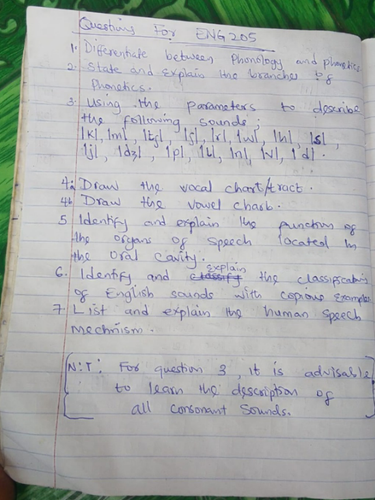 Questions For ENG 205
1. Differentiate between Phonology and phonetics
2. State and explain the branches of
Phonetics.
3. Using the parameters to describe
the following sounds:
|k|, |m|, |tʃ|, |ʃ|, |r|, |w|, |h|, |s|,
|j|, |dʒ|, |p|, |t|, |n|, |v|, |d|.
4a Draw the vocal chart/tract.
4b Draw the vowel chart.
5. Identify and explain the function of
the organs of speech located in
the oral cavity.
6. Identify and explain the classification
of English sounds with copious examples
7. List and explain the human speech
mechnism.
N:T: For question 3, it is advisable
to learn the description of
all consonant sounds.